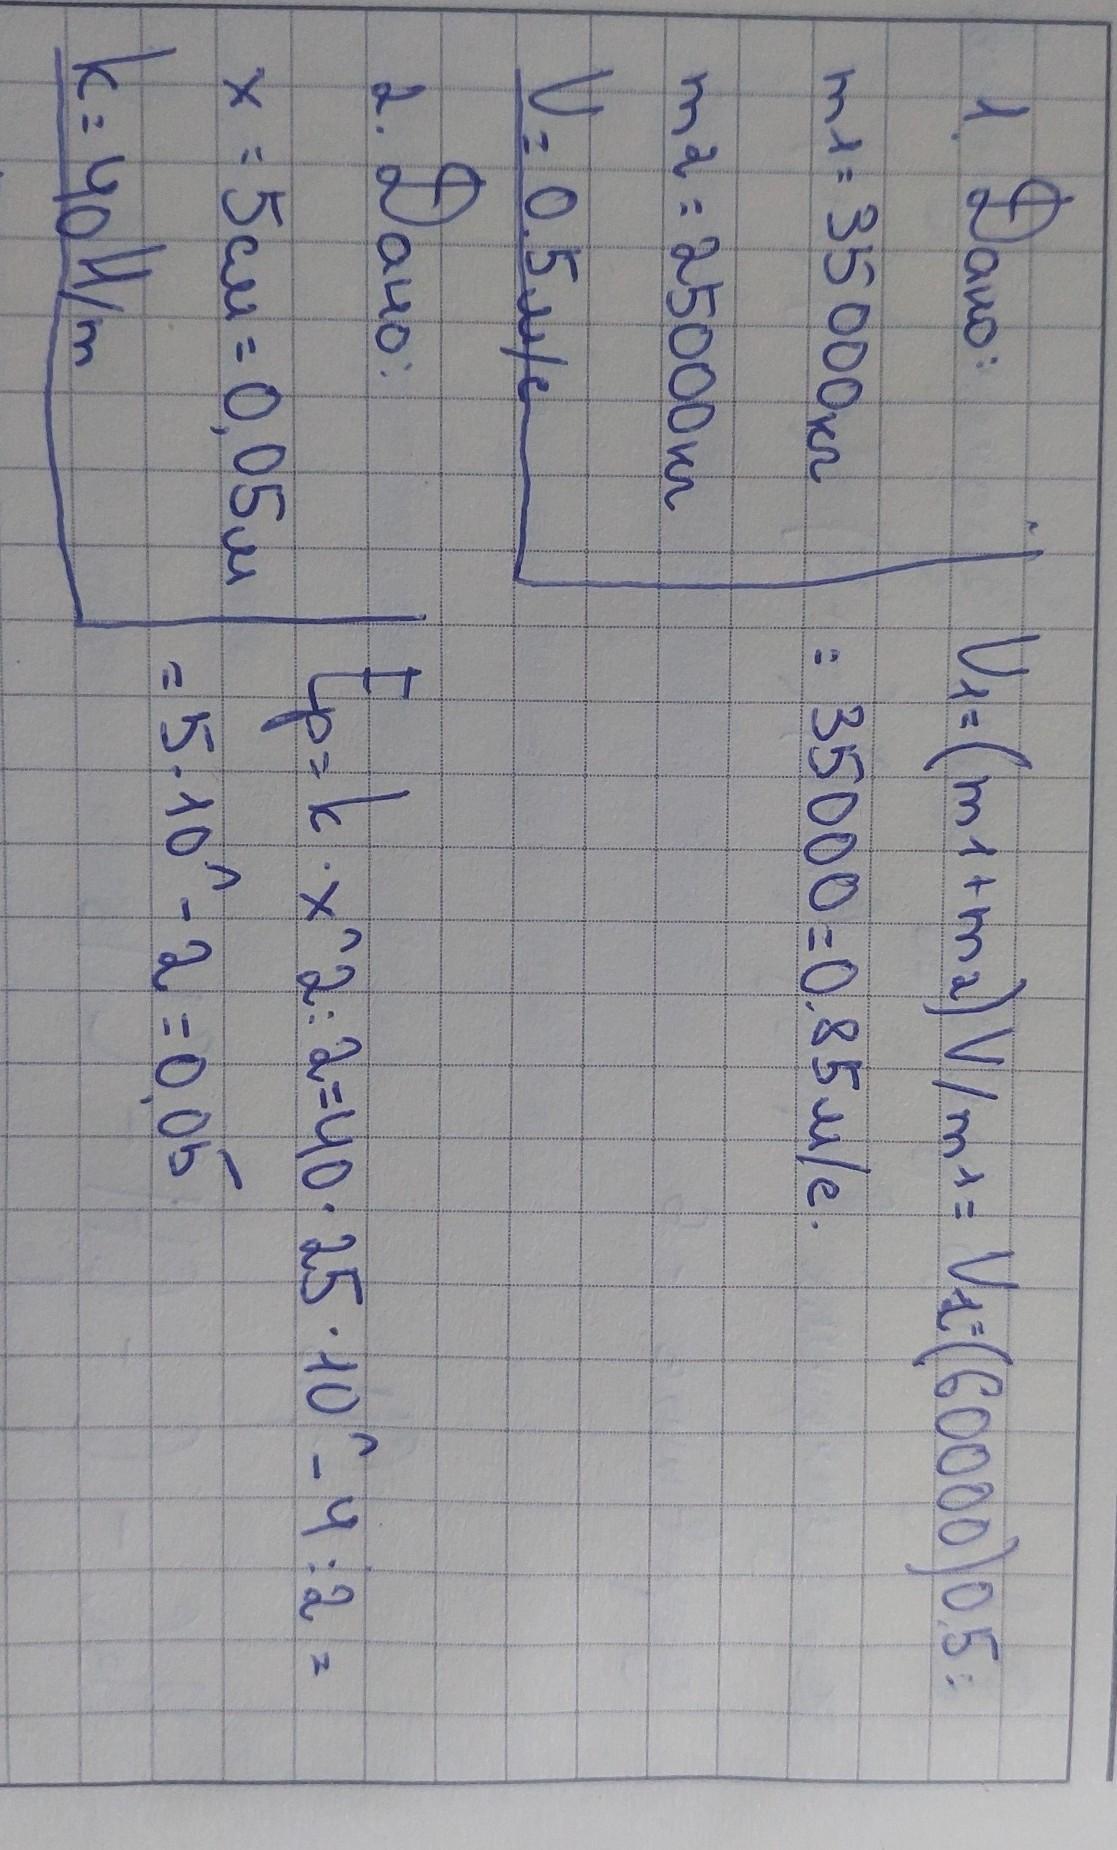 1. Дано:
m1 = 35000кг
m2 = 25000кг
V = 0.5м/с
V1=(m1+m2)V/m1= V1=(60000)0,5:
: 35000=0,85м/с.
2. Дано:
x = 5см = 0,05м
k = 40 H/m
Ep = k · x^2 : 2 = 40 · 25 · 10^-4 : 2 =
= 5 · 10^-2 = 0,05